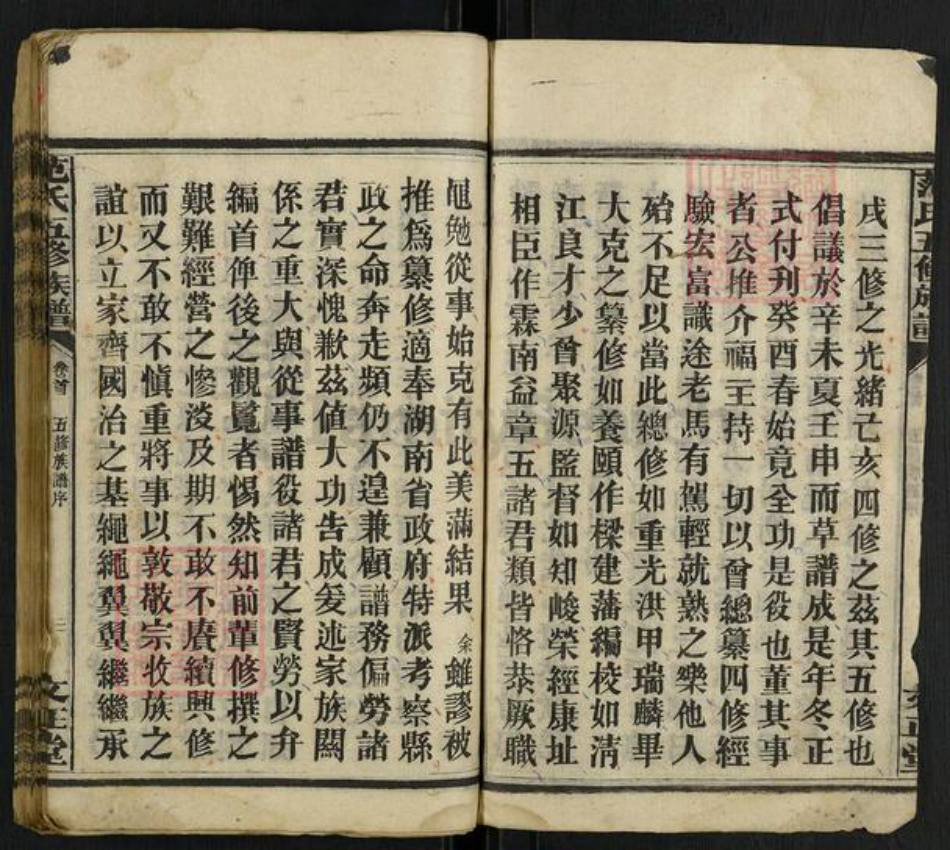 戌三修之光緒己亥四修之茲其五修也
倡議於辛未夏壬申而草譜成是年冬正
式付刋癸酉春始竟全功是役也董其事
者公推介福主持一切以曾總纂四修經
驗宏富識途老馬有駕輕就熟之樂他人
殆不足以當此總修如重光洪甲瑞麟畢
大克之纂修如養頤作樑建藩編校如清
江良才少曾聚源監督如知峻榮經康址
相臣作霖南益章五諸君類皆恪恭厥職
黽勉從事始克有此美滿結果余雖謬被
推爲纂修適奉湖南省政府特派考察縣
政之命奔走頻仍不遑兼顧譜務偏勞諸
君實深愧歉茲值大功告成爰述家族關
係之重大與從事譜役諸君之賢勞以弁
編首俾後之觀覽者惕然知前輩修撰之
艱難經營之慘淡及期不敢不賡續興修
而又不敢不愼重將事以敦敬宗收族之
誼以立家齊國治之基繩繩翼翼繼繼承
范氏五修族譜
卷首
五修族譜序
文正堂